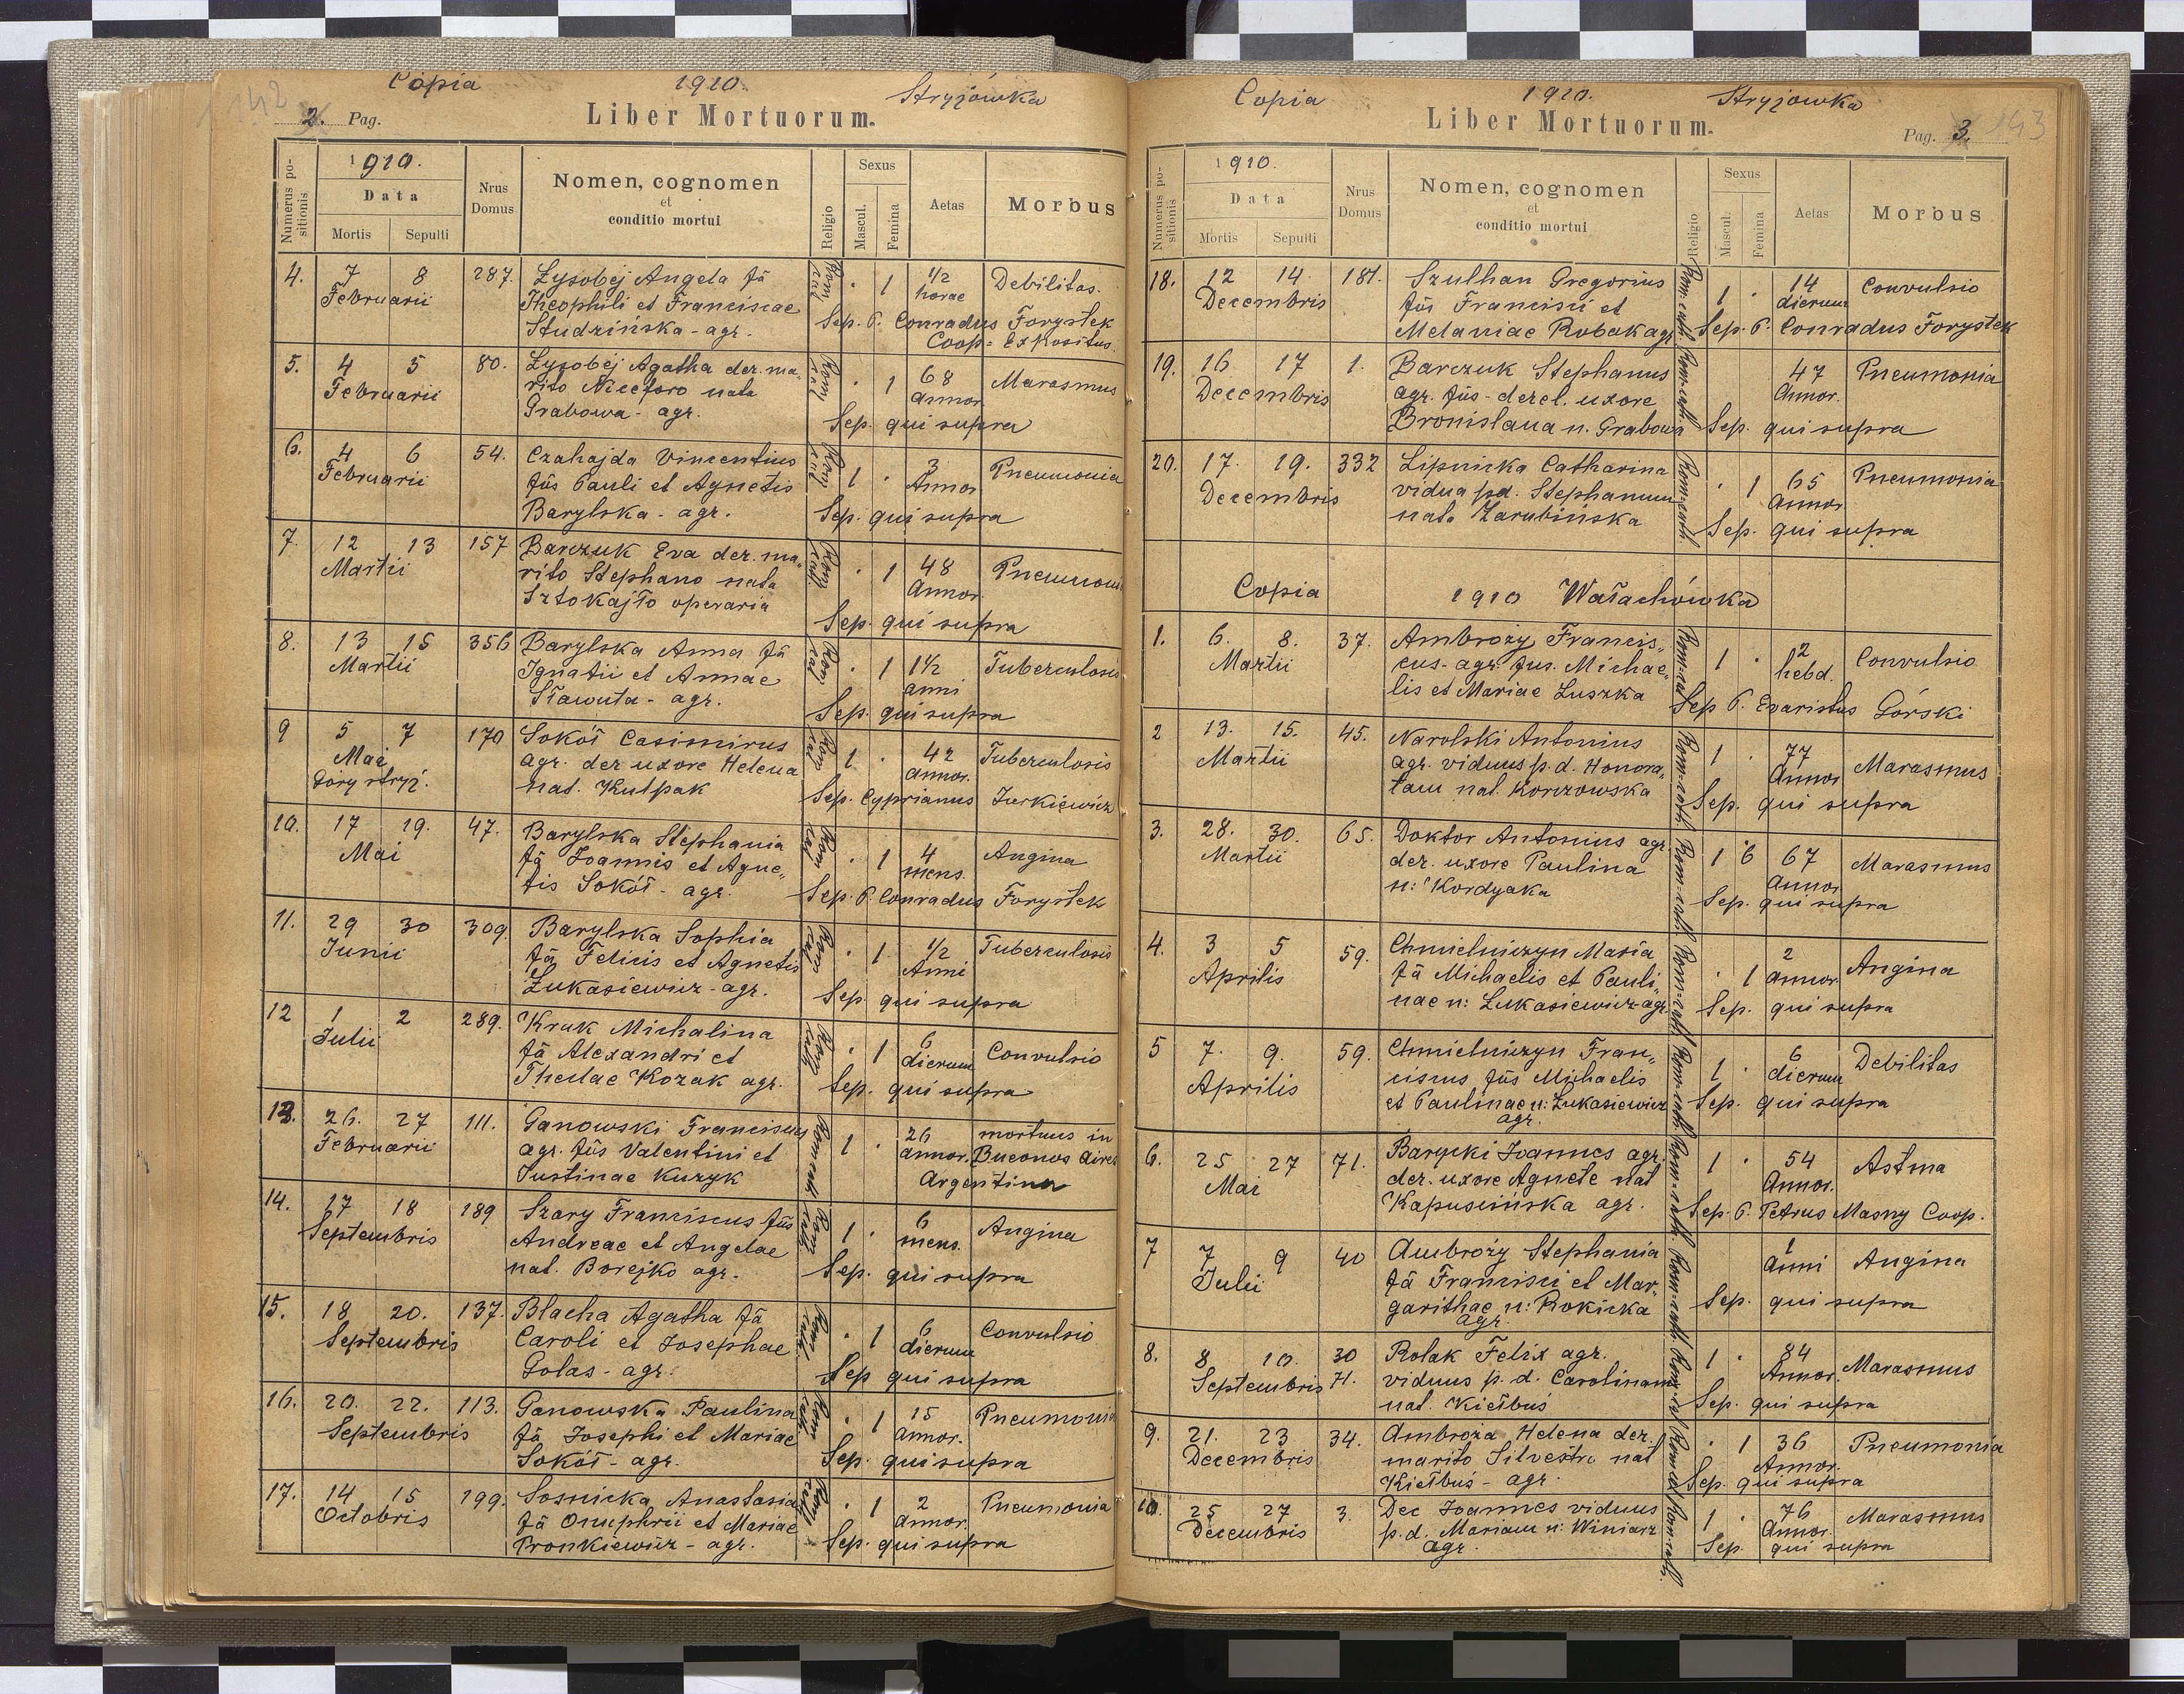 142
Copia 1910. Stryjówka
2. Pag. Liber Mortuorum.
Numerus positionis
1910.
Data
Mortis Sepulti
Nrus Domus
Nomen, cognomen
et
conditio mortui
Religio
Sexus
Mascul. Femina
Aetas
Morbus
4. 7 8 287. Łysobej Angela fā Rom · 1 1/2 Debilitas.
Februarii Theophili et Franciscae horae
Studzińska - agr. Sep. P. Conradus Forystek
Coop. Expositus.
5. 4 5 80. Łysobej Agatha der. ma- Rom · 1 68 Marasmus
Februarii rito Niceforo nata Annor.
Grabowa - agr. Sep. qui supra
6. 4 6 54. Czahajda Vincentius Rom 1 · 3 Pneumonia
Februarii fūs Pauli et Agnetis Annor
Barylska - agr. Sep. qui supra
7. 12 13 157 Barczuk Eva der. ma- Rom · 1 48 Pneumoni
Martii rito Stephano nata Annor.
Sztokajło operaria Sep. qui supra
8. 13 15 356 Barylska Anna fā Rom · 1 1 1/2 Tuberculosis
Martii Ignatii et Annae anni
Sławuta - agr. Sep. qui supra
9 5 7 170 Sokół Casimirus Rom 1 · 42 Tuberculosis
Mai agr. der uxore Helena annor.
Góry stryj. nat. Kulpak Sep. Cyprianus Jurkiewicz
10. 17 19. 47. Barylska Stephania Rom · 1 4 Angina
Mai fā Joannis et Agne- mens.
tis Sokół - agr. Sep. P. Conradus Forystek
11. 29 30 309. Barylska Sophia Rom · 1 1/2 Tuberculosis
Junii fā Felicis et Agnetis Anni
Łukasiewicz - agr. Sep. qui supra
12 1 2 289. Kruk Michalina Rom cath · 1 6 Convulsio
Julii fā Alexandri et dierum
Theclae Kozak agr. Sep. qui supra
13. 26. 27 111. Ganowski Franciscus Rom cath 1 · 26 mortuus in
Februarii agr. fūs Valentini et annor. Buconos Aires
Justinae Kuzyk Argentina
14. 17 18 189 Szary Franciscus fūs Rom cath 1 · 6 Angina
Septembris Andreae et Angelae mens.
nat. Borejko agr. Sep. qui supra
15. 18 20. 137. Blacha Agatha fā Rom cath. · 1 6 Convulsio
Septembris Caroli et Josephae dierum
Golas - agr. Sep qui supra
16. 20. 22. 113. Ganowska Paulina Rom cath. · 1 15 Pneumonia
Septembris fā Josephi et Mariae annor.
Sokół - agr. Sep. qui supra
17. 14 15 199. Sosnicka Anastasia Rom cath · 1 2 Pneumonia
Octobris fā Onuphrii et Mariae Annor.
Pronkiewicz - agr. Sep. qui supra
Copia 1910. Stryjowka
Liber Mortuorum. Pag. 3. 143
Numerus positionis
1910.
Data
Mortis Sepulti
Nrus Domus
Nomen, cognomen
et
conditio mortui
Religio
Sexus
Mascul. Femina
Aetas
Morbus
18. 12 14. 181. Szulhan Gregorius Rom. cath. 1 · 14 Convulsio
Decembris fūs Francisci et dierum
Melaniae Robak agr Sep. P. Conradus Forystek
19. 16 17 1. Barczuk Stephanus Rom. cath. 47 Pneumonia
Decembris agr. fūs - derel. uxore Annor.
Bronislaua n. Grabowa Sep. qui supra
20. 17. 19. 332 Lipnicka Catharina Rom-cath · 1 65 Pneumonia
Decembris vidua p.d. Stephanum Annor.
nata Zarubińska Sep. qui supra
Copia 1910 Wałachówka
1. 6. 8. 37. Ambroży Francis- Rom-cat 1 · 2 Convulsio
Martii cus - agr. fus. Michae- hebd.
lis et Mariae Luszka Sep P. Evaristus Górski
2 13. 15. 45. Narolski Antonius Rom-cath 1 · 77 Marasmus
Martii agr. viduus p.d. Honora- Annor
tam nat. Korczowska Sep. qui supra
3. 28. 30. 65. Doktor Antonius agr. Rom-cath. 1 6 67 Marasmus
Martii der. uxore Paulina Annor.
n: Kordyaka Sep. qui supra
4. 3 5 59. Chmielniczyn Maria Rom-cath · 1 2 Angina
Aprilis fā Michaelis et Pauli- Annor.
nae n: Łukasiewicz agr. Sep. qui supra
5 7. 9. 59. Chmielniczyn Fran- Rom-cath. 1 · 6 Debilitas
Aprilis ciscus fūs Michaelis dierum
et Paulinae n: Łukasiewicz Sep. qui supra
agr.
6. 25 27 71. Barycki Joannes agr. Rom-cath 1 · 54 Astma
Mai der. uxore Agnete nat Annor.
Kapuscińska agr. Sep. P. Petrus Masny Coop.
7 7 9 40 Ambroży Stephania Rom-cath. 1 Angina
Julii fā Francisci et Mar- Anni
garithae n: Rokicka Sep. qui supra
agr.
8. 8 10. 30 Rolak Felix agr. Rom-cat 1 · 84 Marasmus
Septembris 71. viduus p.d. Carolinam Annor.
nat. Kiełbus Sep. qui supra
9. 21. 23 34. Ambroża Helena der. Rom cat · 1 36 Pneumonia
Decembris marito Silvestro nat Annor.
Kiełbuś - agr. Sep. qui supra
10. 25 27 3. Dec Joannes viduus Rom-cath. 1 · 76 Marasmus
Decembris p.d. Mariam n: Winiarz Annor.
agr. Sep. qui supra